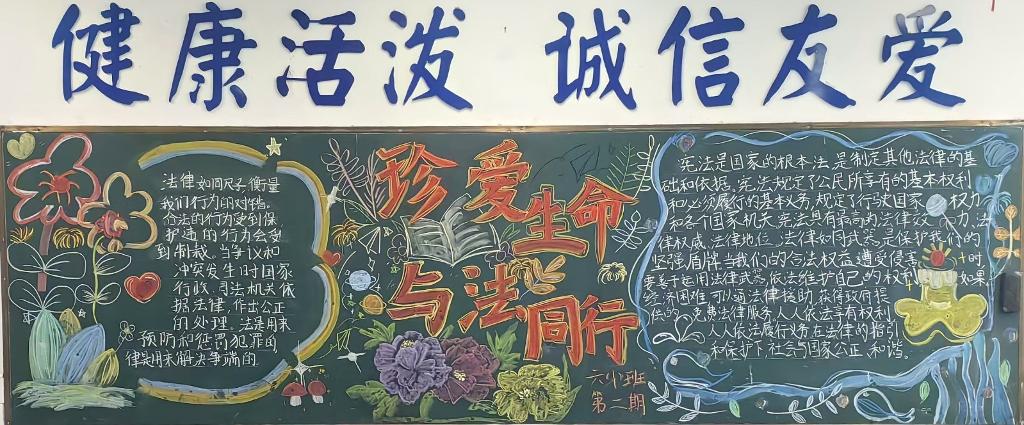 健康活泼 诚信友爱
法律如同尺子衡量
我们行为的对错。
合法的行为受到保
护违的行为会受
到制裁。当争议和
冲突发生时国家
行政、司法机关依
据法律，作出公正
的处理。法是用来
预防和惩罚犯罪的
律是用来解决争端的.
珍爱生命
与法同行
六(1)班
第二期
宪法是国家的根本法,是制定其他法律的基
础和依据。宪法规定了公民所享有的基本权利
和必须履行的基本义务,规定了行驶国家 权力
和各个国家机关.宪法具有最高的法律效 力、法
律权威、法律地位。法律如同武器,是保护我们的
坚强盾牌.当我们的合法权益遭受侵害 时
要善于运用法律武器,依法维护自己的权利 如果
经济困难,可以通过法律援助,获得政府提
供的免费法律服务,人人依法享有权利,
人人依法履行义务,在法律的指引
和保护下,社会与国家公正、和谐。